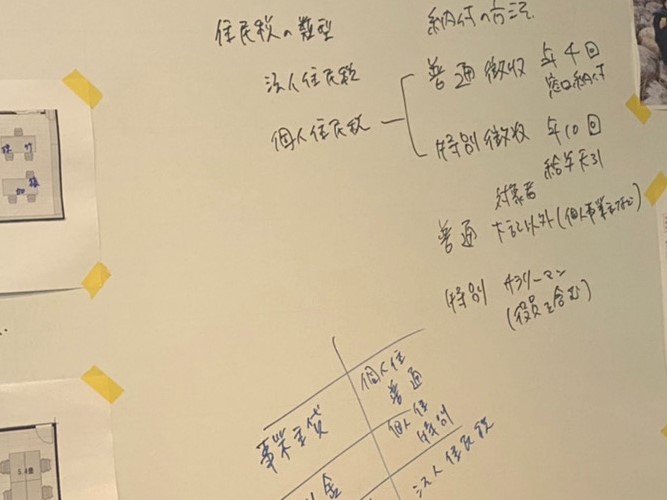 住民税の類型
納付の方法
法人住民税
個人住民税
普通徴収 年4回
窓口納付
特別徴収 年10回
給与天引
対象者
普通 下記以外(個人事業主など)
特別 サラリーマン
(役員を含む)
個人住
普通
事業主貸
個人住
特別
金
法人住民税